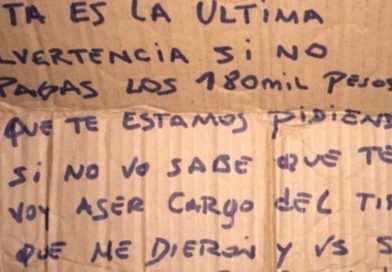 TA ES LA ULTIMA
LVERTENCIA Si NO
PAGAS LOS 180Mil PESOS
QUE TE ESTAMOS PiDiEND
Si NO VO SABE QUE TE
VOY ASER CARGO dEL Ti
QUE ME DiERON Y VS S